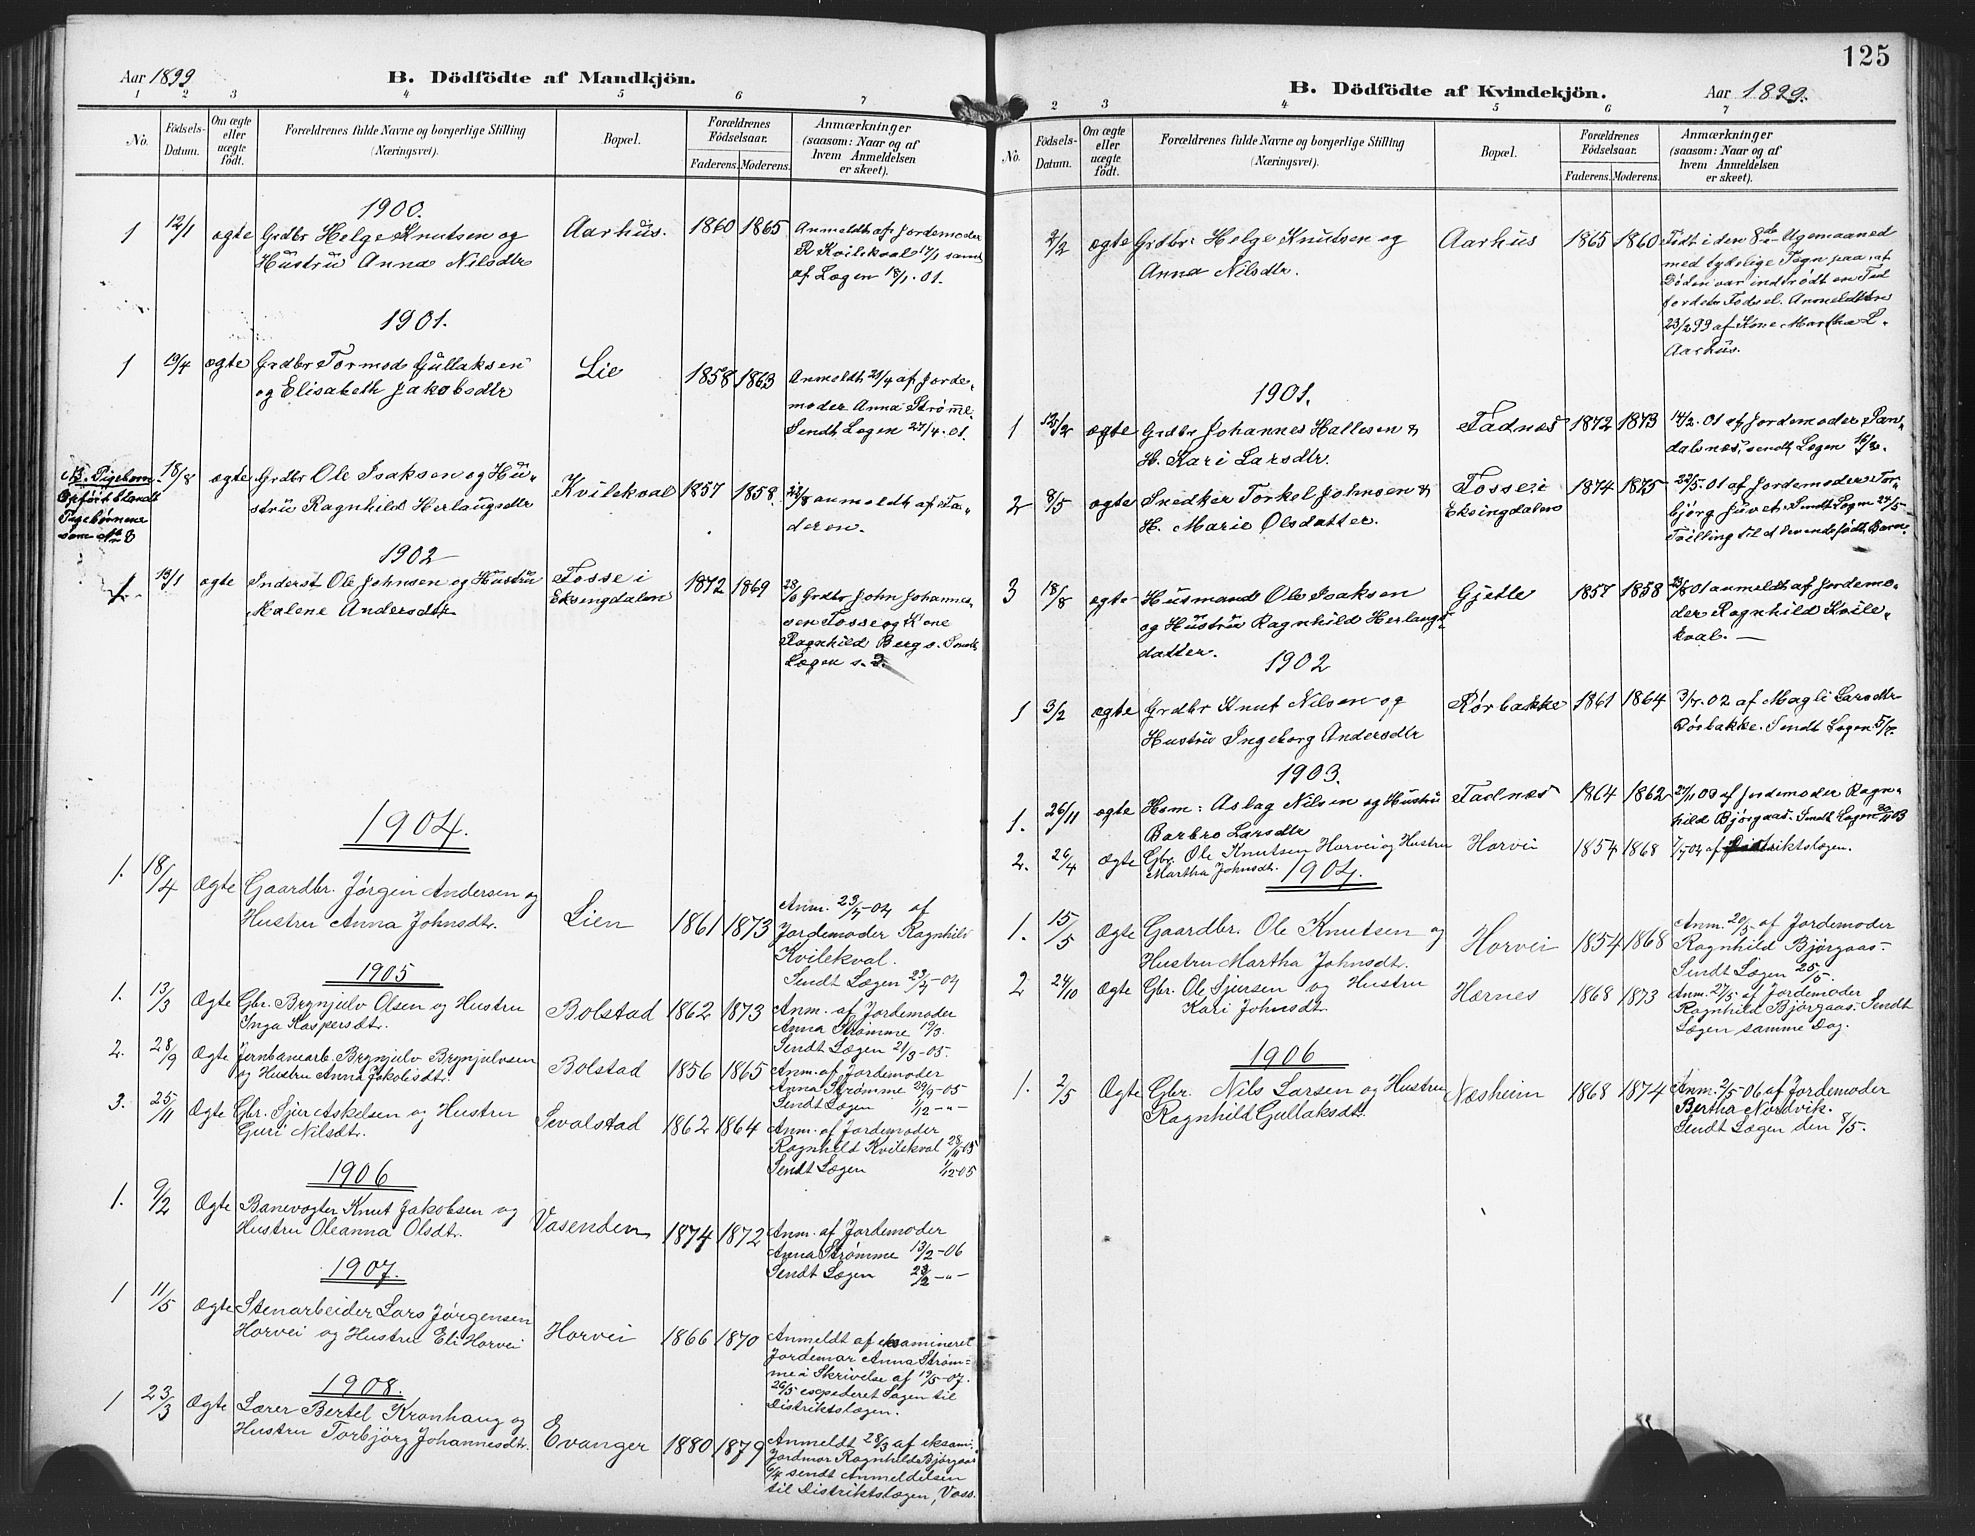 Aar 1899
B. Dödfödte af Mandkjön.
1 2 3 4 5 6 7
No.
Födsels-
Datum.
Om ægte
eller
uægte
födt.
Forældrenes fulde Navne og borgerlige Stilling
(Næringsvei).
Bopæl.
Forældrenes
Födselsaar.
Faderens. Moderens.
Anmærkninger
(saasom: Naar og af
hvem Anmeldelsen
er skeet).
1900.
1 12/1 ægte Grdbr Helge Knutsen og
Hustru Anna Nilsdtr
Aarhus. 1860 1865
Anmeldt af Jordemoder
R Kvilekval 17/1 samt
af Lægen 18/1. 01.
1901.
1 19/4 ægte Grdbr Tormod Gullaksen
og Elisabeth Jakobsdtr
Lie 1858 1863
Anmeldt 21/4 af Jorde-
moder Anna Strømme.
Sendt Lægen 27/4. 01.
NB. Pigebarn.
Opført blandt
Pigebørnene
som No 3
18/8 ægte Grdbr Ole Isaksen og Hu-
stru Ragnhild Herlaugsdtr
Kvilekval 1857 1858.
22/8 anmeldt af Fa-
deren.
1902
1. 13/1 ægte Inderst Ole Johnsen og Hustru
Malene Andersdtr
Fosse i
Eksingdalen
1872 1869
Grdbr John Johannes-
sen Fosse og Kone
Ragnhild Bergs. Sendt
Lægen s. D.
1904.
1. 18/4 Ægte Gaardbr. Jørgen Andersen og
Hustru Anna Johnsdtr.
Lien 1861 1873
Anm. 23/4-04 af
Jordemoder Ragnhild
Kvilekval.
Sendt Lægen 23/4-04
1905
1. 13/3 Ægte Gbr. Brynjulv Olsen og Hustru
Inga Kaspersdtr.
Bolstad 1862 1873
Anm. af Jordemoder
Anna Strømme 19/3.
Sendt Lægen 21/3-05.
2. 28/9 Ægte Jernbanearb. Brynjulv Brynjulvsen
og Hustru Anna Jakobsdtr.
Bolstad 1856 1865
Anm. af Jordemoder
Anna Strømme 29/9-05
Sendt Lægen 1/12-"-
3. 25/11 Ægte Gbr. Sjur Askelsen og Hustru
Guri Nilsdtr.
Sevalstad 1862 1864
Anm. af Jordemoder
Ragnhild Kvilekval 28/11-05
Sendt Lægen 1/12-05
1906
1. 9/2 Ægte Banevogter Knut Jakobsen og
Hustru Oleanna Olsdtr.
Vasenden 1874 1872
Anm. af Jordemoder
Anna Strømme 13/2-06
Sendt Lægen 23/2-"-
1907.
1 11/5 Ægte Stenarbeider Lars Jørgensen
Horvei og Hustru Eli Horvei
Horvei 1866 1870
Anmeldt af eksamineret
Jordemor Anna Strøm-
me i Skrivelse af 19/5-07.
26/5 expederet Sagen til
Distriktslægen.
1908.
1 23/3 Ægte Lærer Bertel Kronhaug og
Hustru Torbjørg Johannesdtr.
Evanger 1880 1879
Anmeldt 28/3 af eksami.
Jordmor Ragnhild Bjørgaas
6/4 sendt Anmeldelsen
til Distriktslægen, Voss.
125
B. Dödfödte af Kvindekjön.
Aar 1899.
2 3 4 5 6 7
No.
Födsels-
Datum.
Om ægte
eller
uægte
födt.
Forældrenes fulde Navne og borgerlige Stilling
(Næringsvei).
Bopæl.
Forældrenes
Födselsaar.
Faderens. Moderens.
Anmærkninger
(saasom: Naar og af
hvem Anmeldelsen
er skeet).
2/2 ægte Grdbr: Helge Knutsen og
Anna Nilsdtr.
Aarhus 1865 1860
Født i den 8de Ugemaaned
med tydelige Tegn paa, at
Døden var indtrådt en Tid
førden Fødsel. Anmeldt
23/2 99 af Kone Martha L.
Aarhus.
1901.
1 12/2 ægte Grdbr Johannes Hallesen &
H. Kari Larsdtr.
Fadnæs 1872 1873
14/2. 01 af Jordemoder San-
dalsnæs, sendt Lægen
2 8/5 ægte Snedker Torkel Johnsen &
H. Marie Olsdatter.
Fosse i
Eksingdalen
1874 1875
22/5. 01 af Jordemoder Tor-
bjørg Juvet. Sendt Lægen 24/5-
Tvilling til et levendefødt Barn.
3 18/8 ægte Husmand Ole Isaksen
og Hustru Ragnhild Herlaugs-
datter.
Gjetle 1857 1858
23/8 01 anmeldt af Jordemo-
der Ragnhild Kvile-
kval. —
1902
1 3/2 ægte Grdbr Knut Nilsen og
Hustru Ingeborg Andersdtr
Rørbakke 1861 1864
02 af Magli Larsdtr
Rørbakke. Sendt Lægen
1903.
1. 26/11 ægte Hsm: Aslag Nilsen og Hustru
Barbro Larsdtr
Fadnæs 1864 1862
27/11 03 af Jordemoder Ragn-
hild Bjørgaas. Sendt Lægen 30/11 03
2. 26/4 Ægte Gbr. Ole Knutsen Horvei og Hustru
Martha Johnsdt.
Horvei 1854 1868
af Distriktslægen.
1904.
1. 15/5 Ægte Gaardbr. Ole Knutsen og
Hustru Martha Johnsdt.
Horvei 1854 1868
Anm. 20/5 af Jordemoder
Ragnhild Bjørgaas-
Sendt Lægen 25/5.
2 24/10 Ægte Gbr. Ole Sjursen og Hustru
Kari Johnsdt.
Hærnes 1868 1873
Anm. 27/5 af Jordemoder
Ragnhild Bjørgaas- Sendt
Lægen samme Dag.
1906
1. 2/5 Ægte Gbr. Nils Larsen og Hustru
Ragnhild Gullaksdt.
Næsheim 1868 1874
Anm. 2/5-06 af Jordemoder
Bertha Nordvik.
Sendt Lægen den 8/5.